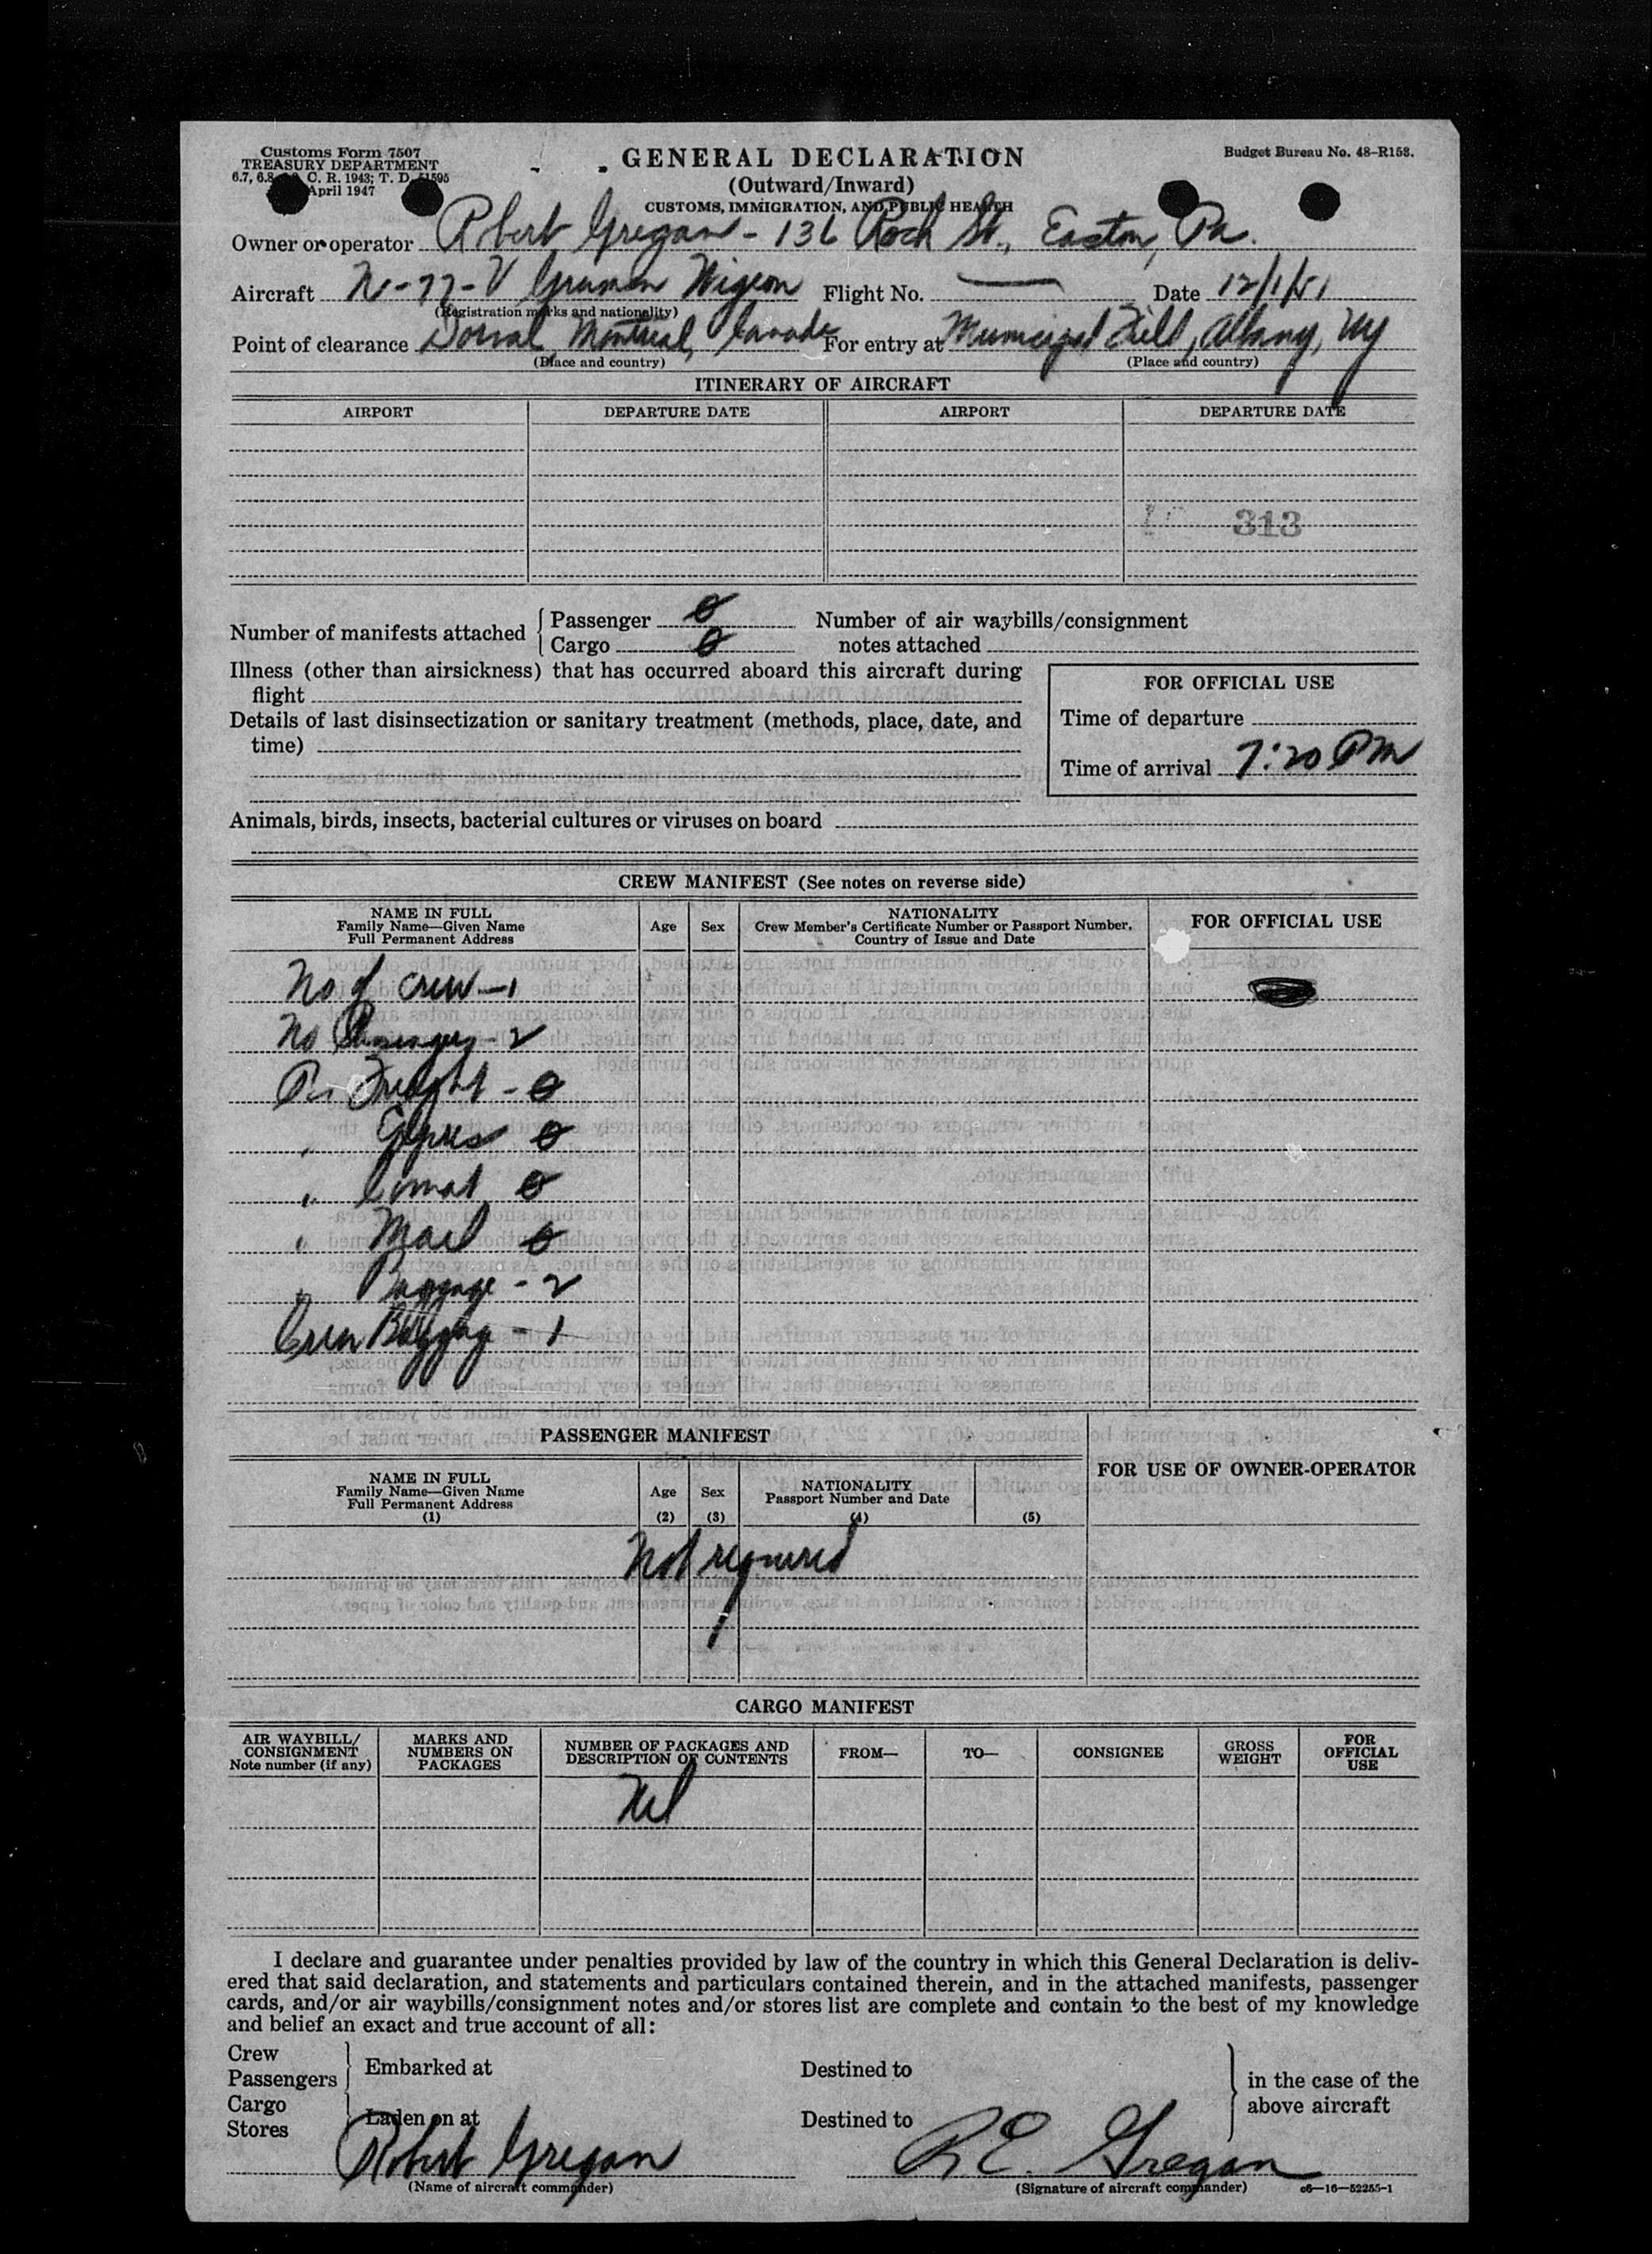 Customs Form 7507
TREASURY DEPARTMENT
6.7, 6.8, C. R. 1943; T. D. 51595
April 1947
GENERAL DECLARATION
(Outward/Inward)
CUSTOMS, IMMIGRATION, AND PUBLIC HEALTH
Budget Bureau No. 48-R153.
Owner or operator Robert Gregan - 136 Rock St., Easton, Pa.
Aircraft N-77-V Gruman Wigeon Flight No. — Date 12/1/51
(Registration marks and nationality)
Point of clearance Dorval, Montreal, Canada For entry at Municipal Field, Albany, NY
(Place and country) (Place and country)
ITINERARY OF AIRCRAFT
AIRPORT DEPARTURE DATE AIRPORT DEPARTURE DATE
313
Number of manifests attached Passenger 0 Number of air waybills/consignment
Cargo 0 notes attached
Illness (other than airsickness) that has occurred aboard this aircraft during
flight
FOR OFFICIAL USE
Details of last disinsectization or sanitary treatment (methods, place, date, and
time)
Time of departure
Time of arrival 7:20 PM
Animals, birds, insects, bacterial cultures or viruses on board
CREW MANIFEST (See notes on reverse side)
NAME IN FULL
Family Name—Given Name
Full Permanent Address
Age Sex
NATIONALITY
Crew Member's Certificate Number or Passport Number,
Country of Issue and Date
FOR OFFICIAL USE
No of crew - 1
No Passengers - 2
Freight - 0
" Express 0
" Comat 0
" Mail 0
" Baggage - 2
Crew Baggage - 1
PASSENGER MANIFEST
FOR USE OF OWNER-OPERATOR
NAME IN FULL
Family Name—Given Name
Full Permanent Address
(1)
Age
(2)
Sex
(3)
NATIONALITY
Passport Number and Date
(4) (5)
Not required
CARGO MANIFEST
AIR WAYBILL/
CONSIGNMENT
Note number (if any)
MARKS AND
NUMBERS ON
PACKAGES
NUMBER OF PACKAGES AND
DESCRIPTION OF CONTENTS
FROM— TO— CONSIGNEE
GROSS
WEIGHT
FOR
OFFICIAL
USE
Nil
I declare and guarantee under penalties provided by law of the country in which this General Declaration is deliv-
ered that said declaration, and statements and particulars contained therein, and in the attached manifests, passenger
cards, and/or air waybills/consignment notes and/or stores list are complete and contain to the best of my knowledge
and belief an exact and true account of all:
Crew
Passengers Embarked at Destined to in the case of the
Cargo above aircraft
Stores Laden on at Destined to
Robert Gregan R. E. Gregan
(Name of aircraft commander) (Signature of aircraft commander) c6—16—52255-1